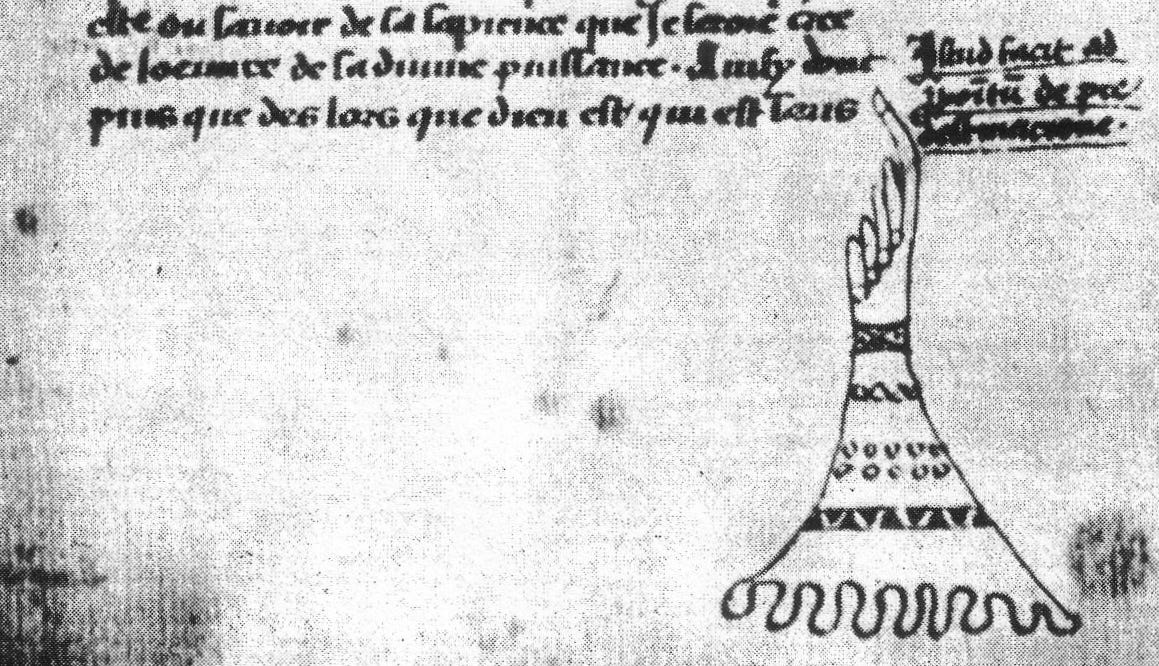 este ou sauoir de la sapience que Je sauoie cree
de locuure de sa diuine puissance. Ainsy dont
puis que des lors que dieu est qui est sans
Istud facit ad
de pre
destinacione.